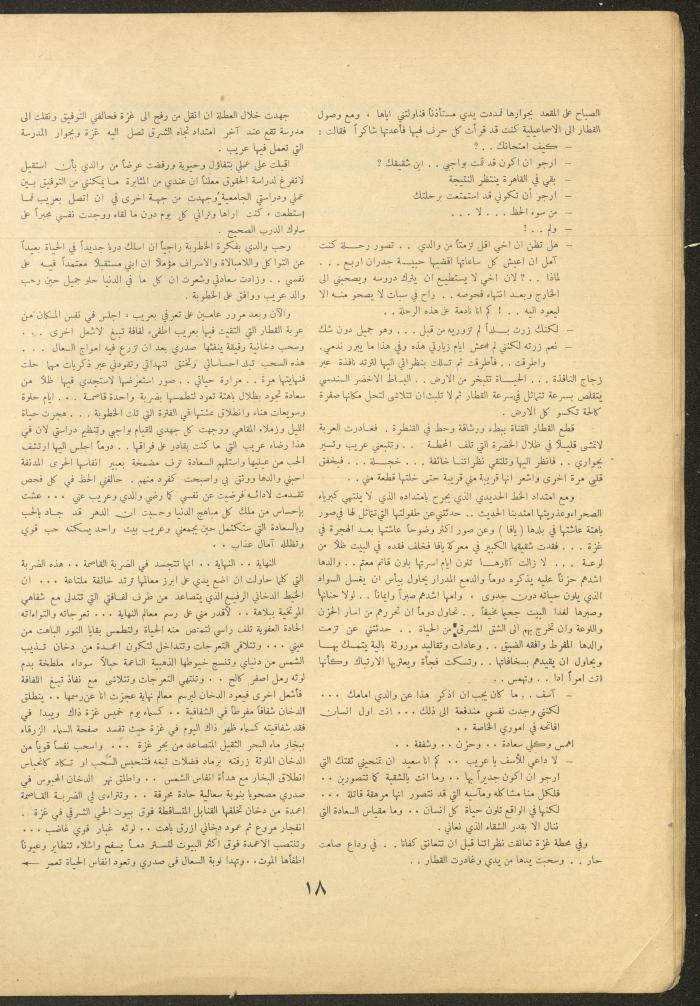 الصباح على المقعد بجوارها فمددت يدي مستأذناً فناولتني اياها ، ومع وصول
القطار الى الاسماعيلية كنت قد قرأت كل حرف فيها فأعدتها شاكراً فقالت :
– كيف امتحاناتك . . ؟
– ارجو ان اكون قد قمت بواجبي . . ابن شقيقك ؟
– بقي في القاهرة ينتظر النتيجة
– ارجو أن تكوني قد استمتعت برحلتك
– من سوء الحظ . . . لا . . .
– ولم . . !
– هل تظن ان اخي اقل تزمتاً من والدي . . تصور رحلة كنت
آمل ان اعيش كل ساعاتها اقضيها حبيسة جدران اربع . . .
لماذا . . ? لان اخي لا يستطيع ان يترك دروسه ويصحبني الى
الخارج وبعد انتهاء فحوصه . . راح في سبات لا يصحو منه الا
ليعود اليه . . ! كم انا نادمة على هذه الرحلة . .
– لكنك زرت بلداً لم تزوريه من قبل . . . وهو جميل دون شك
– نعم زرته لكنني لم اعش ايام زيارتي هذه وفي هذا ما يبرر ندمي .
واطرقت . . فأطرقت ثم تسللت بنظراتي اليها لترتد نافذة عبر
زجاج النافذة . . . الحياة تتبخر من الارض . . البساط الاخضر السندسي
يتقلص بسرعة تتماثل في سرعة القطار ثم لا تلبث ان تتلاشى لتحل مكانها صفرة
كالحة تكسو كل الارض .
قطع القطار القناة ببطء ورشاقة وحط في القنطرة . فغادرت العربة
لاتمشى قليلاً في ظلال الخضرة التي تلف المحطة . . وتتبعني عريب وتسير
بجواري . . فانظر اليها وتلتقي نظراتنا خائفة . . . خجلة . . فيخفق
قلبي مرة اخرى واشعر انها قريبة مني قريبة حتى خلتها قطعة مني . .
ومع امتداد الخط الحديدي الذي يجرح بامتداده الذي لا ينتهي كبرياء
الصحراء وعذريتها امتد بنا الحديث . . حدثتني عن طفولتها التي تتماثل لها في صور
باهتة عاشتها في بلدها ( يافا ) وعن صور اكثر وضوحاً عاشتها بعد الهجرة في
غزة . . . فقدت شقيقها الكبير في معركة يافا فخلف فقده في البيت ظلاً من
لوعة . . . لا زالت آثارها تلون ايام اسرتها بلون قاتم معتم . . والدها
اشدهم حزناً عليه يذكره دوماً والدمع المدرار يحاول بيأس ان يغسل السواد
الذي يلون حياته دون جدوى . وامها اشدهم صبراً وايماناً . . لولا حنانها
وصبرها لغدا البيت جحيماً مخيفاً . . تحاول دوماً ان تحررهم من اسار الحزن
واللوعة وان تخرج بهم الى الشق المشرق من الحياة . . حدثتني عن تزمت
والدها المفرط وافقه الضيق . . وعادات وتقاليد موروثة بالية يتمسك بها
ويحاول ان يقيدهم بسخافاتها . . وتسكت فجأة ويعتريها الارتباك وكأنها
اتت امراً ادا . . وتهمس . .
– آسف . . ما كان يجب ان اذكر هذا عن والدي امامك . . .
لكنني وجدت نفسي مندفعة الى ذلك . . . انت اول انسان
افاتحه في اموري الخاصة . .
اهمس وكلي سعادة . . وحزن . . وشفقة . .
– لا داعي للأسف يا عريب . . كم انا سعيد ان تمنحيني ثقتك التي
ارجو ان اكون جديراً بها . . وما انت بالشقية كما تتصورين . .
فلكل منا مشاكله ومآسيه التي قد نتصور انها مرهقة قاتلة . . .
لكنها في الواقع تلون حياة كل انسان . . وما مقياس السعادة التي
تنال الا بقدر الشقاء الذي نعاني .
وفي محطة غزة تعانقت نظراتنا قبل ان تتعانق كفانا . . في وداع صامت
حار . . وسحبت يدها من يدي وغادرت القطار . .
جهدت خلال العطلة ان انقل من رفح الى غزة فحالفني التوفيق ونقلت الى
مدرسة تقع عند آخر امتداد تجاه الشرق تصل اليه غزة وبجوار المدرسة
التي تعمل فيها عريب .
اقبلت على عملي بتفاؤل وحيوية ورفضت عرضاً من والدي بأن استقيل
لاتفرغ لدراسة الحقوق معلناً ان عندي من المثابرة ما يمكنني من التوفيق بين
عملي ودراستي الجامعية وجهدت من جهة اخرى في ان اتصل بعريب فما
إستطعت ، كنت اراها وتراني كل يوم دون ما لقاء ووجدت نفسي مجبراً على
سلوك الدرب الصحيح .
رحب والدي بفكرة الخطوبة راجياً ان اسلك درباً جديداً في الحياة بعيداً
عن التواكل واللامبالاة والاسراف مؤملاً ان ابني مستقبلاً معتمداً فيه على
نفسي . . وزادت سعادتي وشعرت ان كل ما في الدنيا حلو جميل حين رحب
والد عريب ووافق على الخطوبة .
والآن وبعد مرور عامين على تعرفي بعريب ، اجلس في نفس المكان من
عربة القطار التي التقيت فيها بعريب اطفىء لفافة تبغ لاشعل اخرى . .
وسحب دخانية رقيقة ينفثها صدري بعد ان ترزع فيه امواج السعال . . .
هذه السحب تبك احساساتي وتخنق تنهداتي وتقودني عبر ذكريات مهما حلت
فنهايتها مرة . . مرارة حياتي . . صور استعرضها لاستجدي فيها ظلاً من
سعادة تجود بظلال باهتة تعود لتطمسها بضربة واحدة قاصمة . . ايام حلوة
وسويعات هناء وانطلاق عشتها في الفترة التي تلت الخطوبة . . . هجرت حياة
الليل وزملاء المقاهي ووجهت كل جهدي للقيام بواجبي وتنظيم دراستي لان في
هذا رضاء عريب التي ما كنت بقادر على فراقها . . دوماً اجلس اليها ارتشف
الحب من عينيها واستلهم السعادة ترف مضمخة بعبير انفاسها الحرى المدنفة
احبني والدها ووثق بي واصبحت كفرد منهم . حالفني الحظ في كل فحص
تقدمت لادائه فرضيت عن نفسي كما رضي والدي وعريب عني . . . عشت
بإحساس من ملك كل مباهج الدنيا وحسبت ان الدهر قد جاد بالحب
وبالسعادة التي ستكتمل حين يجمعني وعريب بيت واحد يسكنه حب قوي
وتظلله آمال عذاب . .
النهاية . . النهاية . . انها تتجسد في الضربة القاصمة . . هذه الضربة
التي كلما حاولت ان اضع يدي على ابرز معالمها ترتد خائفة ملتاعة . . . ان
الخيط الدخاني الرفيع الذي يتصاعد من طرف لفافتي التي تتدلى مع شفاهي
المرتخية ببلاهة . . لاقدر مني على رسم معالم النهاية . . . تعرجاته والتواءاته
الحادة العفوية تلف رأسي لتمتص منه الحياة ولتطمس بقايا النور الباهت من
عيني . . . وتتلاقى التعرجات وتتداخل لتكون اعمدة من دخان تذيب
الشمس من دنياي وتنسج خيوطها الذهبية الناعمة حبالاً سوداء ملطخة بدم
لوثه رمل اصفر كالح . . وتنتهي التعرجات وتتلاشى مع نفاذ تبغ اللفافة
فأشعل اخرى فيعود الدخان ليرسم معالم نهاية عجزت انا عن رسمها . . ينطلق
الدخان شفافاً مفرطاً في الشفافية . . كسماء يوم خميس غزة ذاك ويبدا في
فقد شفافيته كسماء ظهر ذاك اليوم في غزة حيث تفسد صفحة السماء الزرقاء
ببخار ماء البحر الثقيل المتصاعد من بحر غزة . . . واسحب نفساً قوياً من
الدخان الملوثة زرقته برماد فضلات تبغه فتنحبس السحب او تكاد كانحباس
انطلاق البخار مع هدأة انفاس الشمس . . واطلق نهر الدخان المحبوس في
صدري مصحوباً بنوبة سعالية حادة محرقة . . وتتراءى لي الضربة القاصمة
اعمدة من دخان تخلفها القنابل المتساقطة فوق بيوت الحي الشرقي في غزة .
انفجار مروع ثم عمود دخاني ازرق باهت . . لوثه غبار قوي غاضب . . .
وتنتصب الاعمدة فوق اكثر البيوت لتستر دماً يسفح واشلاء تتطاير وعيوناً
اطفأها الموت . . وتهدا نوبة السعال في صدري وتعود انفاس الحياة تعمر ←
١٨